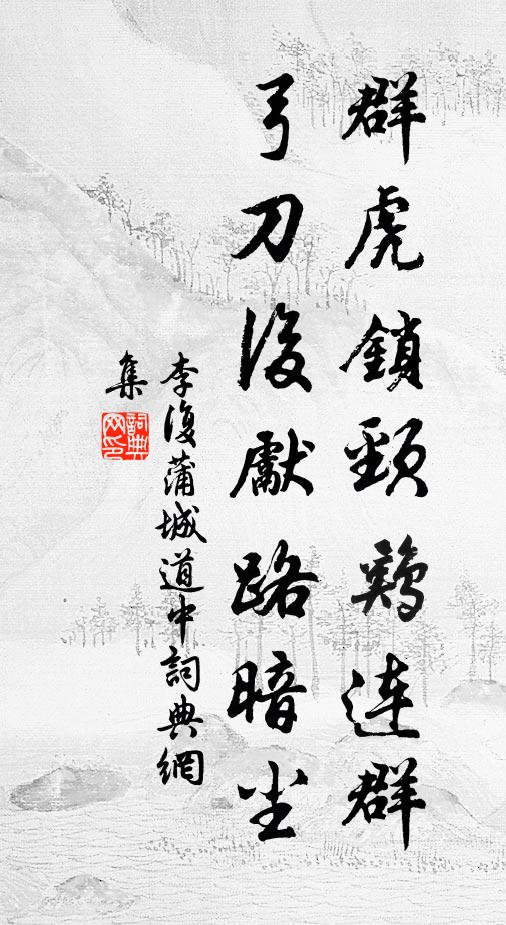 群虎鎖頸鷄連群
弓刀後獻路暗尘
李復蒲城道中詞典網
集
詞典
网印